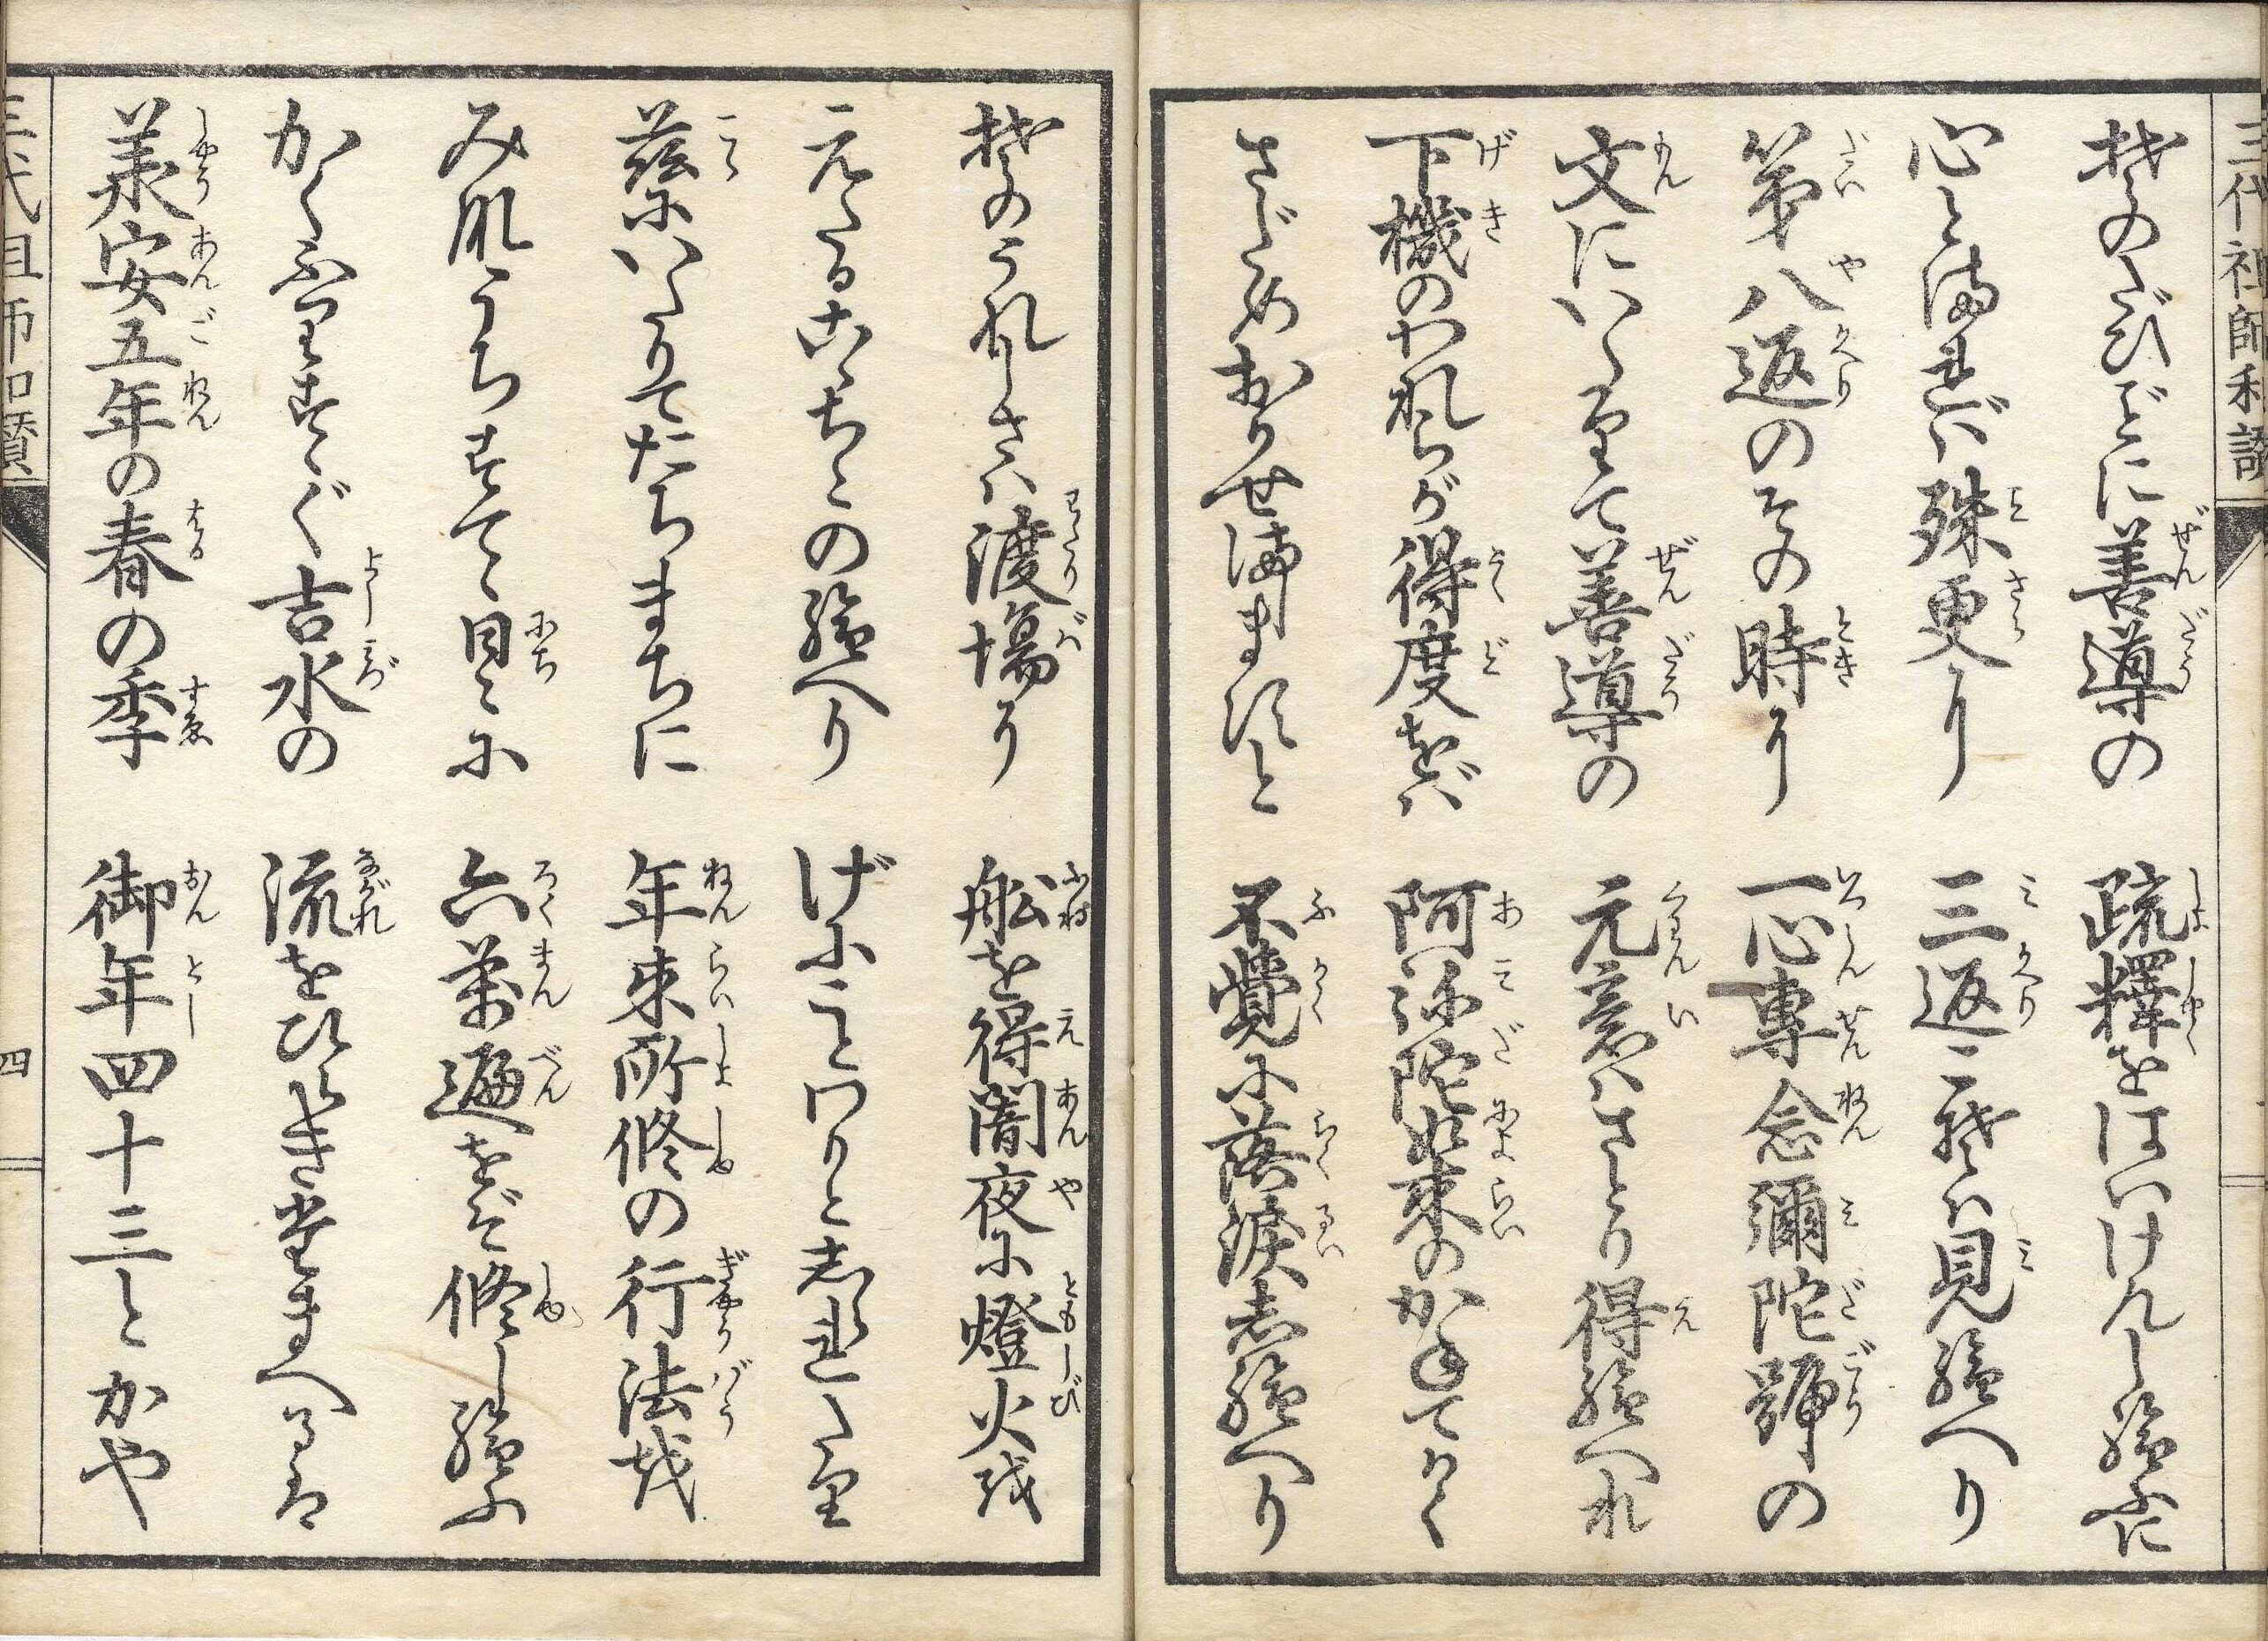 三代祖師和讃
そのたびごとに善導の　疏釋をはいけんし給ふに
心とまれば殊更に　三返こそは見給へり
第八返のその時に　一心專念彌陀號の
文にいたりて善導の　元意はさとり得給へれ
下機のわれらが得度をば　阿弥陀如来のかねてかく
さだめおかせ　と　不覺に落涙し給へり
そのうれしさは渡場に　舩を得闇夜に燈火を
えたるこゝちとの給へり　げにことわりとしられたり
茲にいたりてたちまちに　年来所修の行法を
みなうちすてゝ日々に　六萬遍をぞ修し給ふ
かく　すゝぐ吉水の　流をひらきたまへるは
承安五年の春の季　御年四十三とかや
三代祖師和讃　四